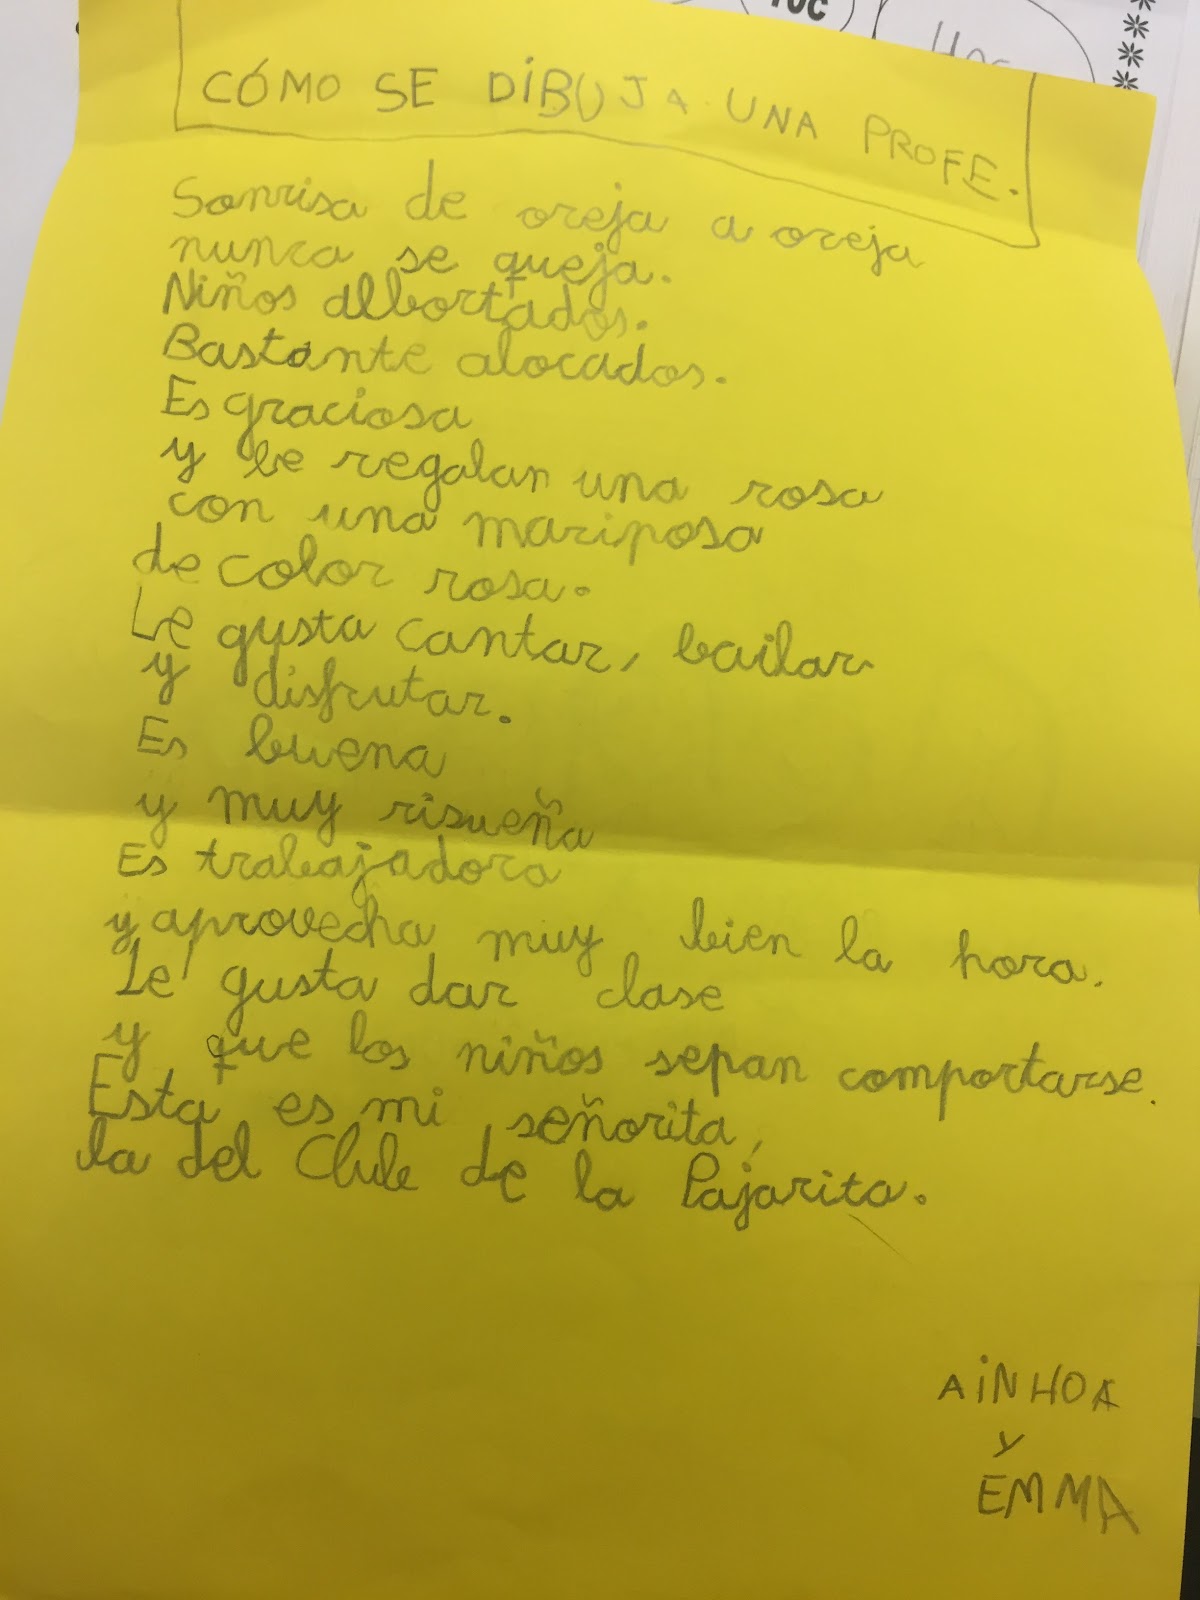 CÓMO SE DIBUJA UNA PROFE.
Sonrisa de oreja a oreja
nunca se queja.
Niños albortados.
Bastante alocados.
Es graciosa
y le regalan una rosa
con una mariposa
de color rosa.
Le gusta cantar, bailar
y disfrutar.
Es buena
y muy risueña
Es trabajadora
y aprovecha muy bien la hora.
Le gusta dar clase
y que los niños sepan comportarse.
Esta es mi señorita,
la del Clule de la Pajarita.
AINHOA
Y
EMMA